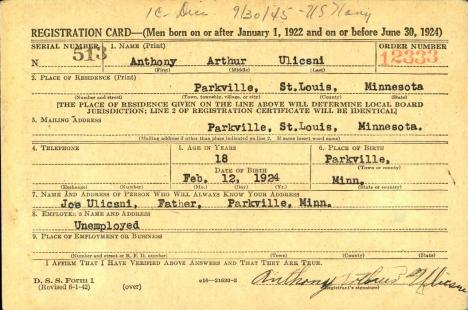 1C Disc 9/30/45 - US Navy
REGISTRATION CARD—(Men born on or after January 1, 1922 and on or before June 30, 1924)
SERIAL NUMBER 1. NAME (Print) ORDER NUMBER
N 513 Anthony Arthur Ulicsni 12333
(First) (Middle) (Last)
2. PLACE OF RESIDENCE (Print)
Parkville, St.Louis, Minnesota
(Number and street) (Town, township, village, or city) (County) (State)
[THE PLACE OF RESIDENCE GIVEN ON THE LINE ABOVE WILL DETERMINE LOCAL BOARD
JURISDICTION; LINE 2 OF REGISTRATION CERTIFICATE WILL BE IDENTICAL]
3. MAILING ADDRESS
Parkville, St.Louis, Minnesota.
(Mailing address if other than place indicated on line 2. If same insert word same)
4. TELEPHONE 5. AGE IN YEARS 6. PLACE OF BIRTH
18 Parkville,
DATE OF BIRTH (Town or county)
Feb. 12, 1924 Minn.
(Exchange) (Number) (Mo.) (Day) (Yr.) (State or county)
7. NAME AND ADDRESS OF PERSON WHO WILL ALWAYS KNOW YOUR ADDRESS
Joe Ulicsni, Father, Parkville, Minn.
8. EMPLOYER'S NAME AND ADDRESS
Unemployed
9. PLACE OF EMPLOYMENT OR BUSINESS
(Number and street or R. F. D. number) (Town) (County) (State)
I AFFIRM THAT I HAVE VERIFIED ABOVE ANSWERS AND THAT THEY ARE TRUE.
D. S. S. Form 1
(Revised 6-1-42) (over) Anthony Ulicsni
(Registrant's signature)